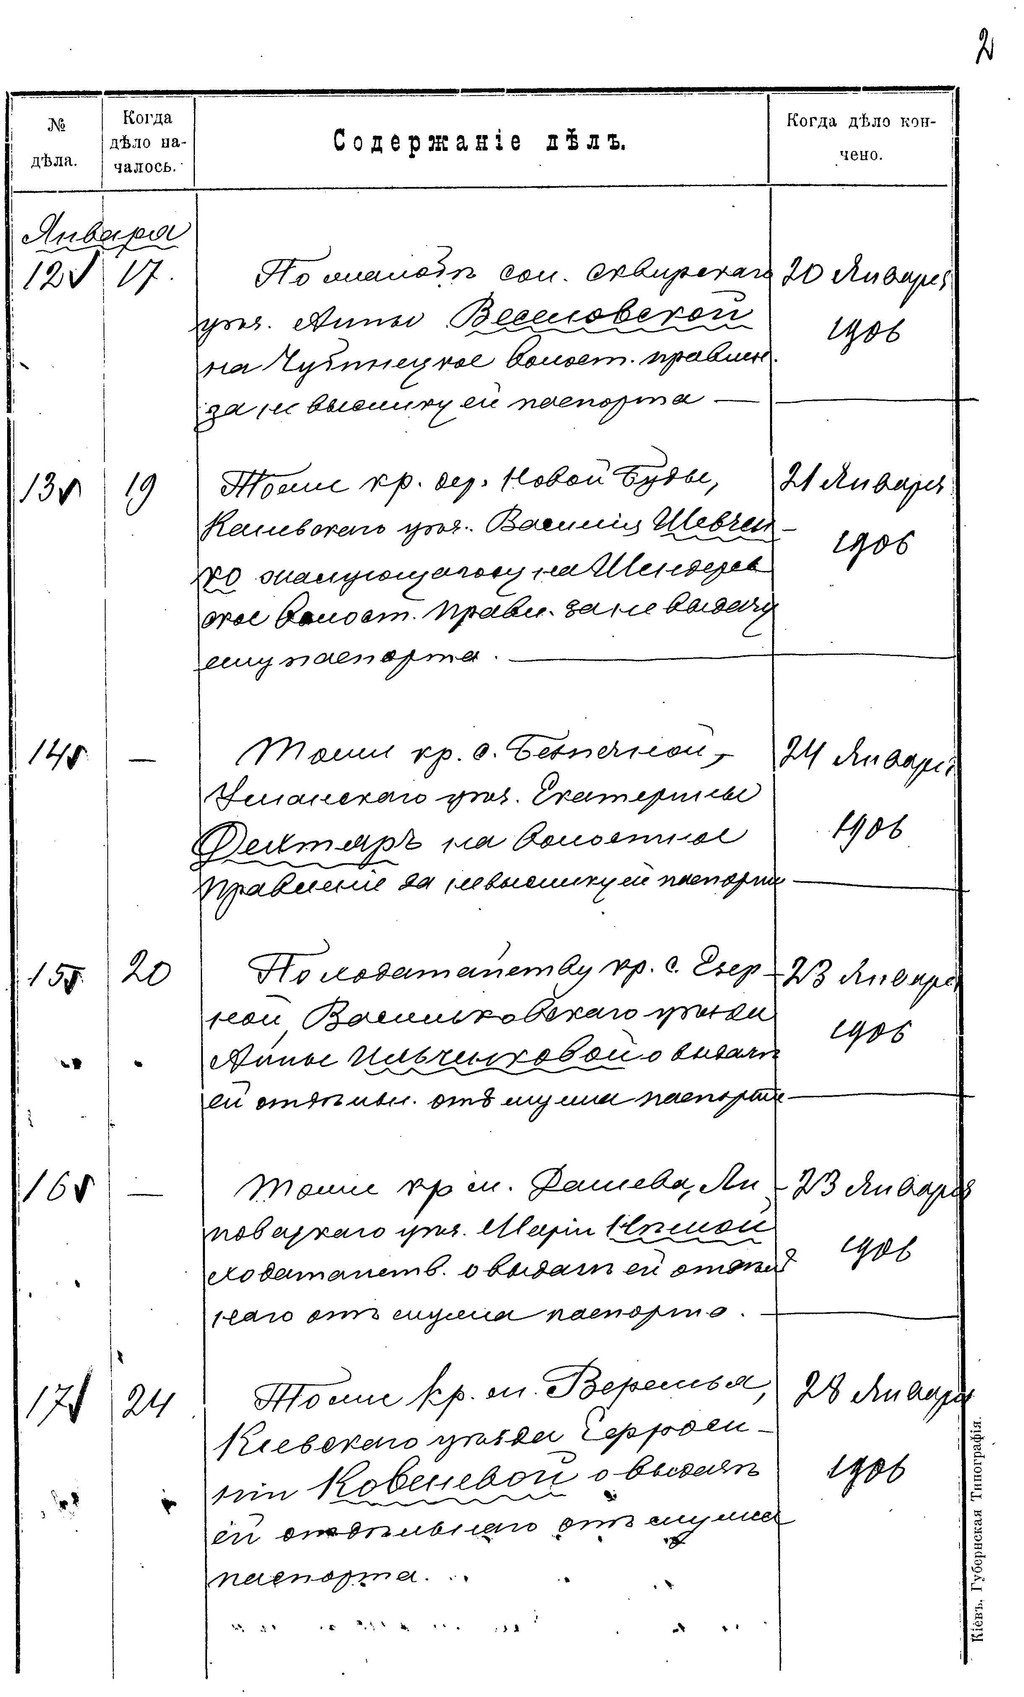 2
№ дѣла.
Когда дѣло на-
чалось.
Содержаніе дѣлъ.
Когда дѣло кон-
чено.
Января
12 17. По жалобѣ сол. Сквирскаго 20 Января
уѣз. Анны Веселовской 1906
на волост. правлен.
за не высылку ей паспорта —
13 19 Тоже кр. дер. Новой Буды, 21 Января
Каневскаго уѣз. Василія Шевчен- 1906
ко жалующагося на Шендеров
ское волост. правл. за не выдачу
ему паспорта.
14 — Тоже кр. с. 24 Января
Уманскаго уѣз. Екатерины
Дехтяръ на волостное 1906
правленіе за невысылку ей паспорта
15 20 По ходатайству кр. с. Езер- 23 Января
ной Васильковскаго уѣзда 1906
Анны Ильченковой о выдачѣ
ей отдѣльн. отъ мужа паспорта
16 — Тоже кр м. Дашева, Ли- 23 Января
повецкаго уѣз. Маріи Нѣмой 1906
ходатайств. о выдачѣ ей отдѣль
наго отъ мужа паспорта.
17 24 Тоже кр. м. Веремья, 28 Января
Кіевскаго уѣзда Евфроси-
ніи о выдачѣ 1906
ей отдѣльнаго отъ мужа
паспорта.
Кіевъ, Губернская Типографія.